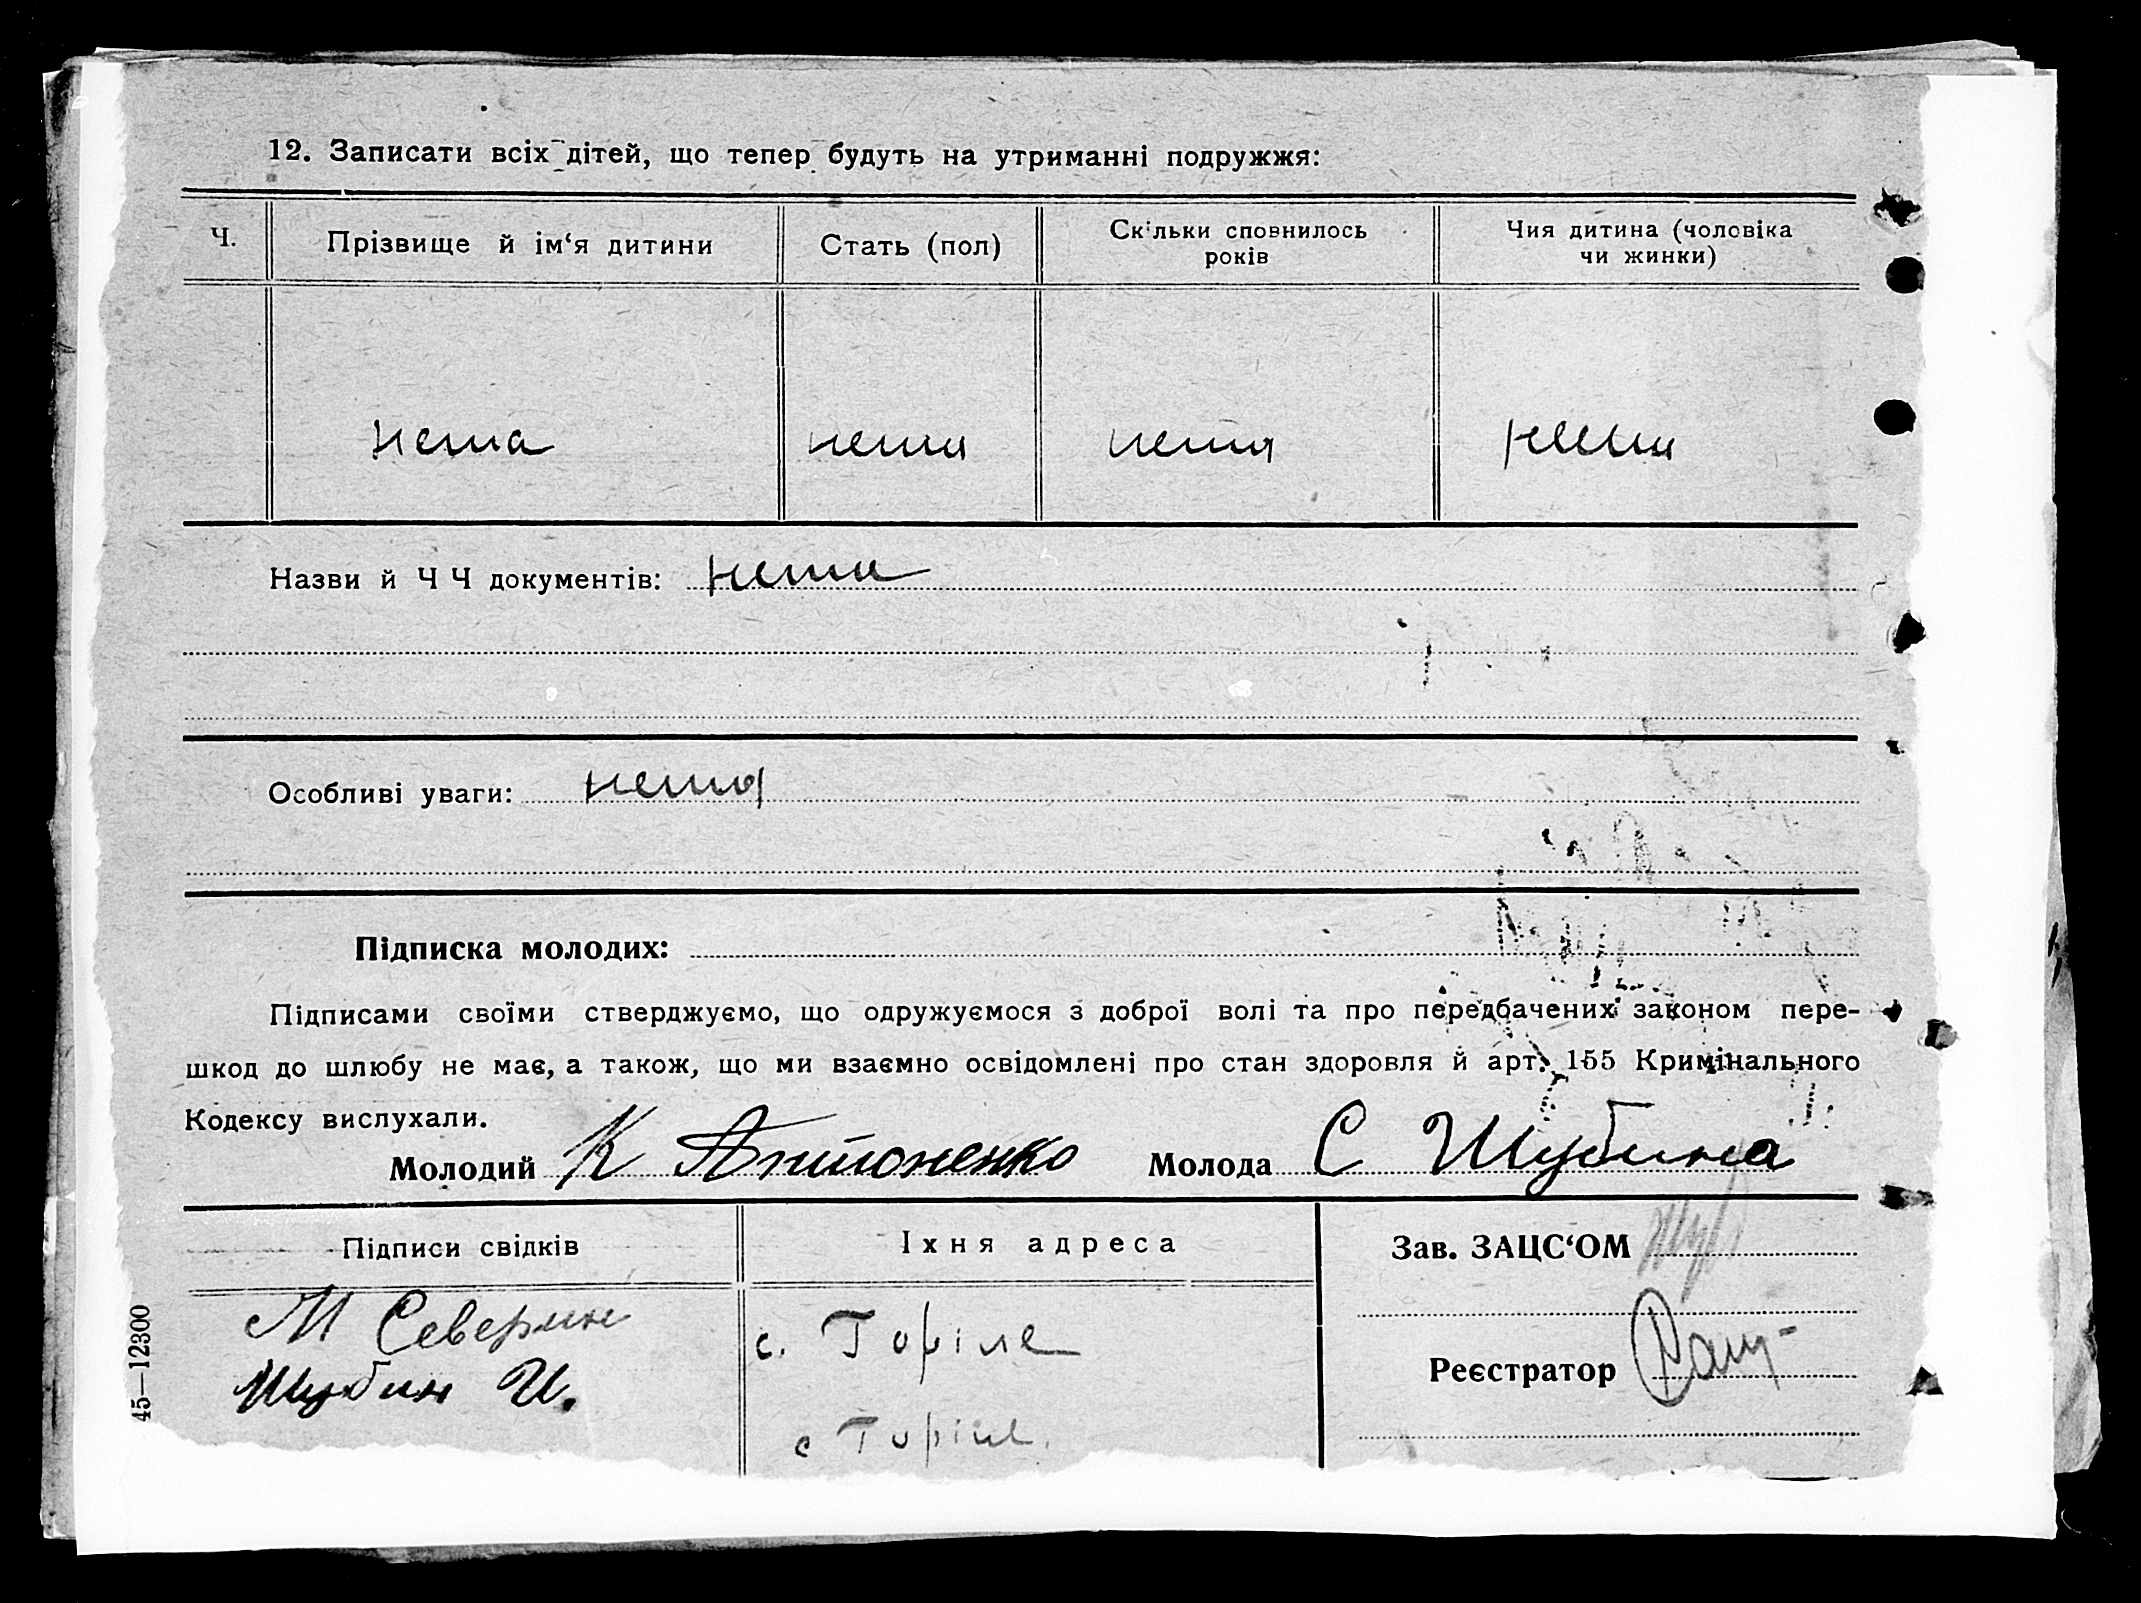 12. Записати всіх дітей, що тепер будуть на утриманні подружжя:
Ч.
Прізвище й ім‘я дитини
Стать (пол)
Скільки сповнилось
років
Чия дитина (чоловіка
чи жинки)
нема нема нема нема
Назви й Ч Ч документів: нема
Особливі уваги: нема
Підписка молодих:
Підписами своїми стверджуємо, що одружуємося з доброї волі та про передбачених законом пере-
шкод до шлюбу не має, а також, що ми взаємно освідомлені про стан здоровля й арт. 155 Кримінального
Кодексу вислухали.
Молодий К Антоненко Молода С Шубина
Підписи свідків
Їхня адреса
Зав. ЗАЦС‘ОМ
М Северин
с. Горіле
Шубин И.
с Горіле.
Реєстратор
45—12300